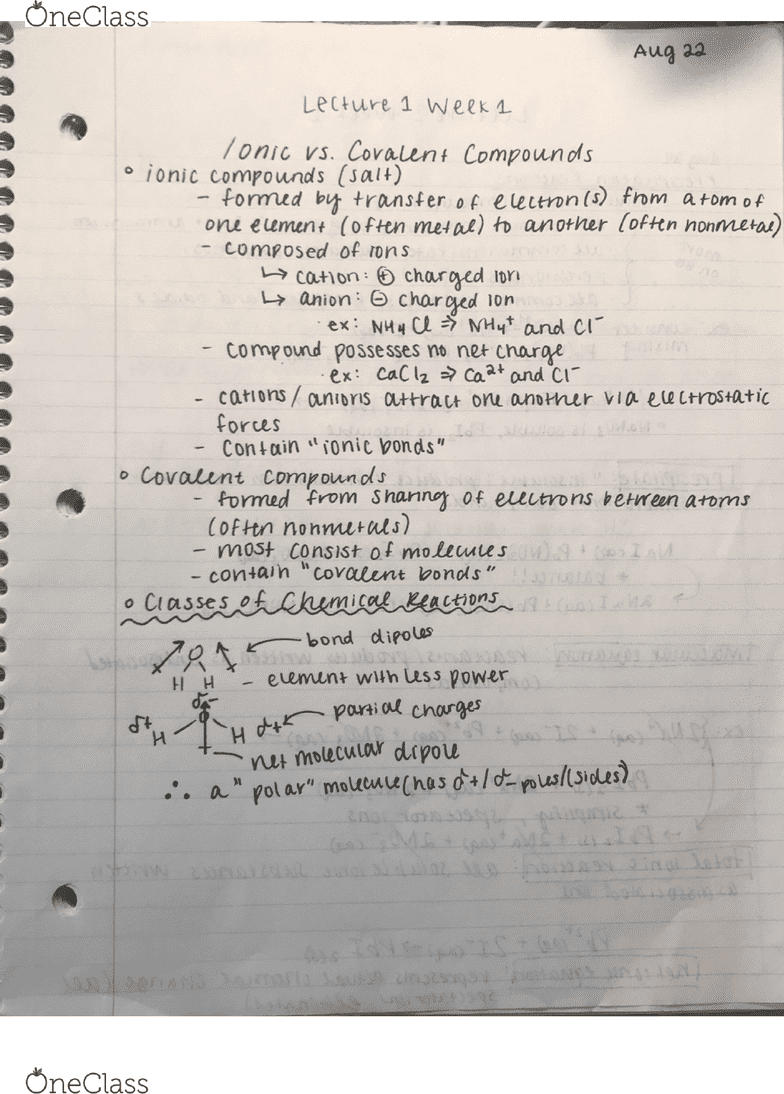 OneClass
Aug 22
Lecture 1 Week 1
Ionic vs. Covalent Compounds
◦ ionic compounds (salt)
- formed by transfer of electron(s) from atom of
one element (often metal) to another (often nonmetal)
- composed of ions
↳ cation: ⊕ charged ion
↳ anion: ⊖ charged ion
· ex: NH4Cl ⇒ NH4+ and Cl-
- compound possesses no net charge
· ex: CaCl2 ⇒ Ca2+ and Cl-
- cations/anions attract one another via electrostatic
forces
- contain "ionic bonds"
◦ Covalent compounds
- formed from sharing of electrons between atoms
(often nonmetals)
- most consist of molecules
- contain "covalent bonds"
◦ Classes of Chemical Reactions
O ← bond dipoles
H H - element with less power
δ- ← partial charges
δ+ H H δ+
net molecular dipole
∴ a "polar" molecule (has δ+/δ- poles/(sides)
OneClass